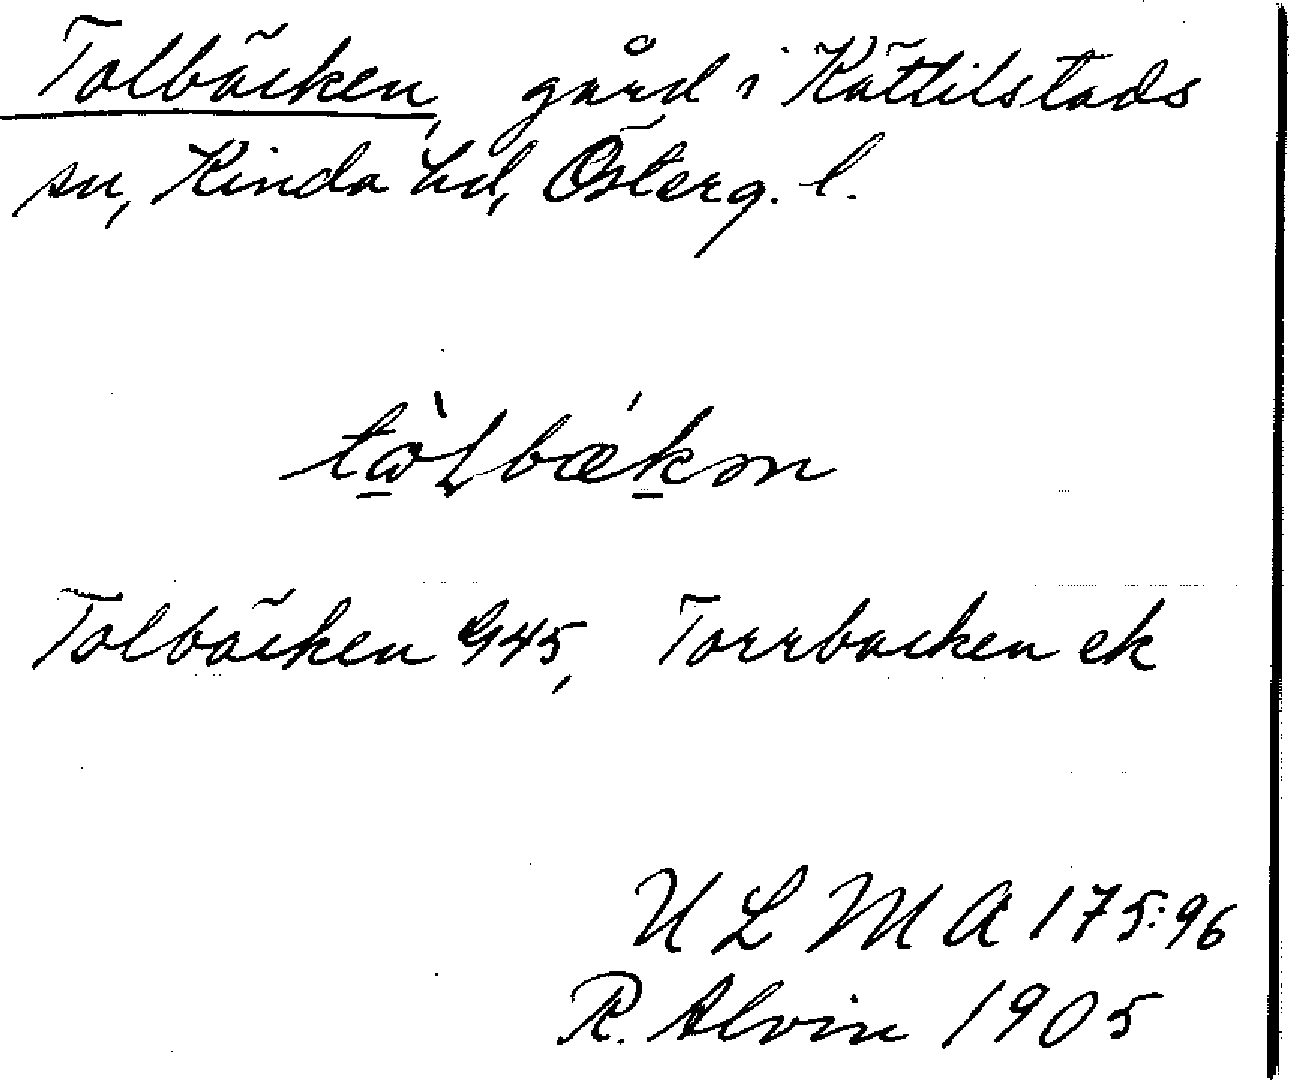 Tolbäcken, gård i Kättilstads
sn, Kinda hd, Österg. l.
Tolbäcken G45, Torrbacken ek
U L M A 175:96
R. Alvin 1905